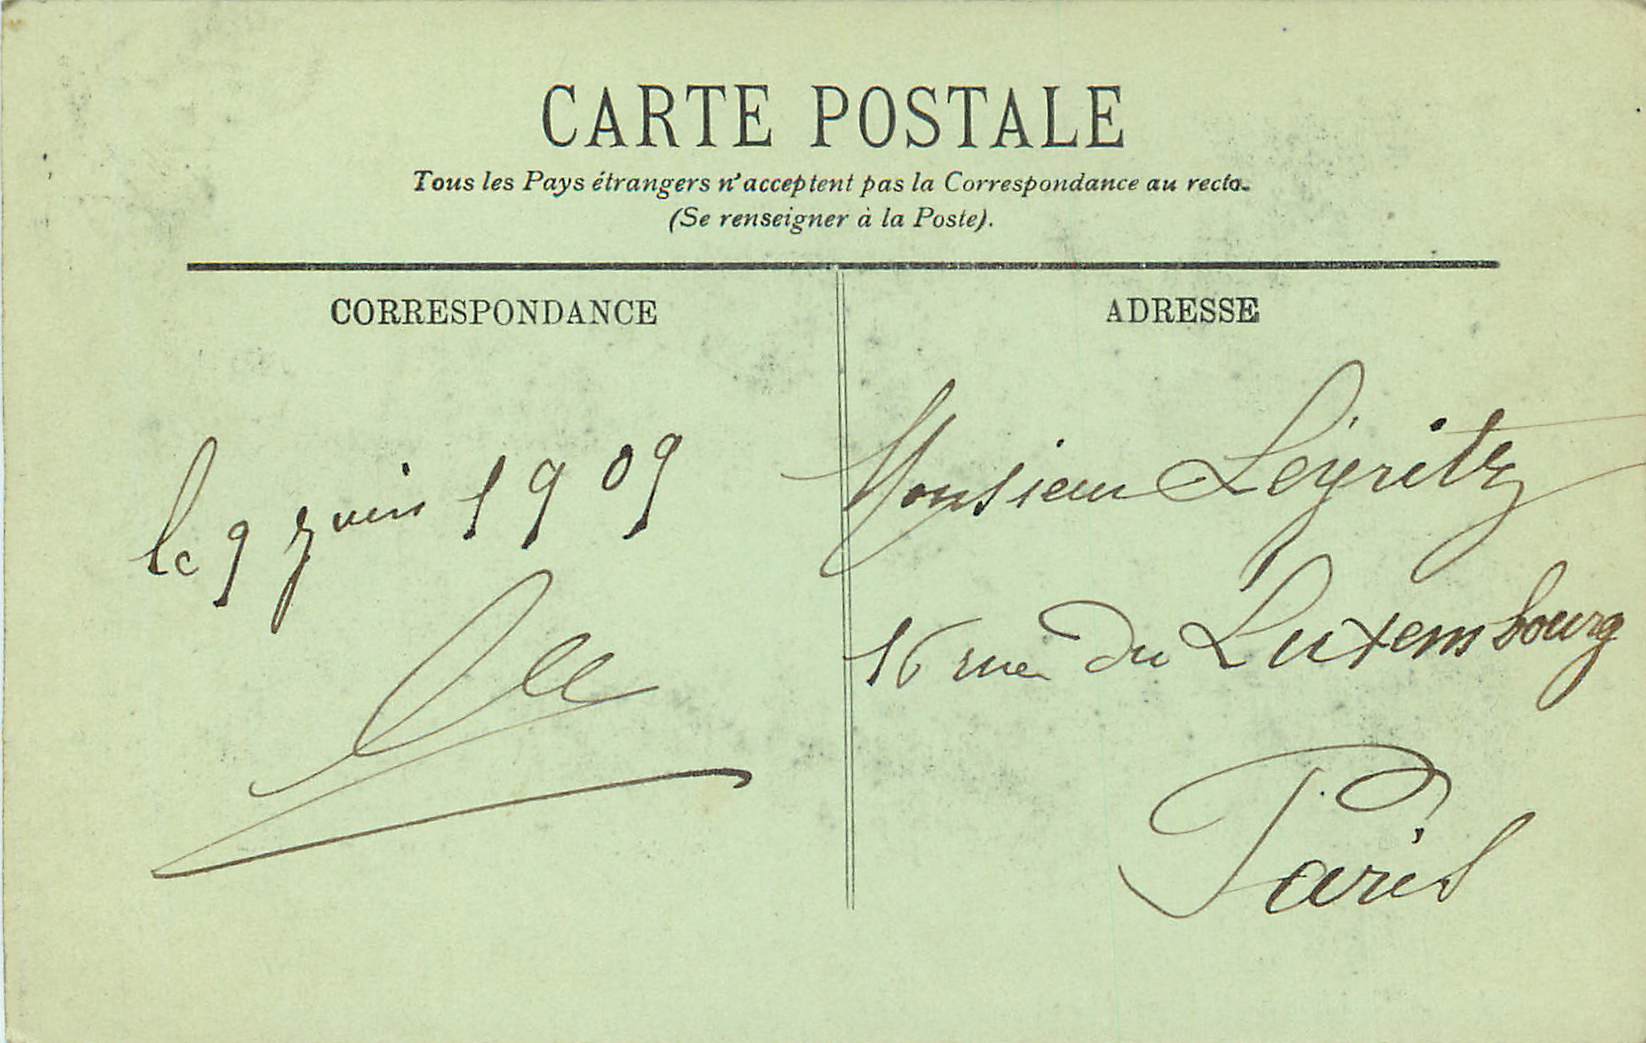 CARTE POSTALE
Tous les Pays étrangers n'acceptent pas la Correspondance au recto.
(Se renseigner à la Poste).
CORRESPONDANCE
le 9 juin 1909
ADRESSE
Monsieur Leyritz
16 rue du Luxembourg
Paris